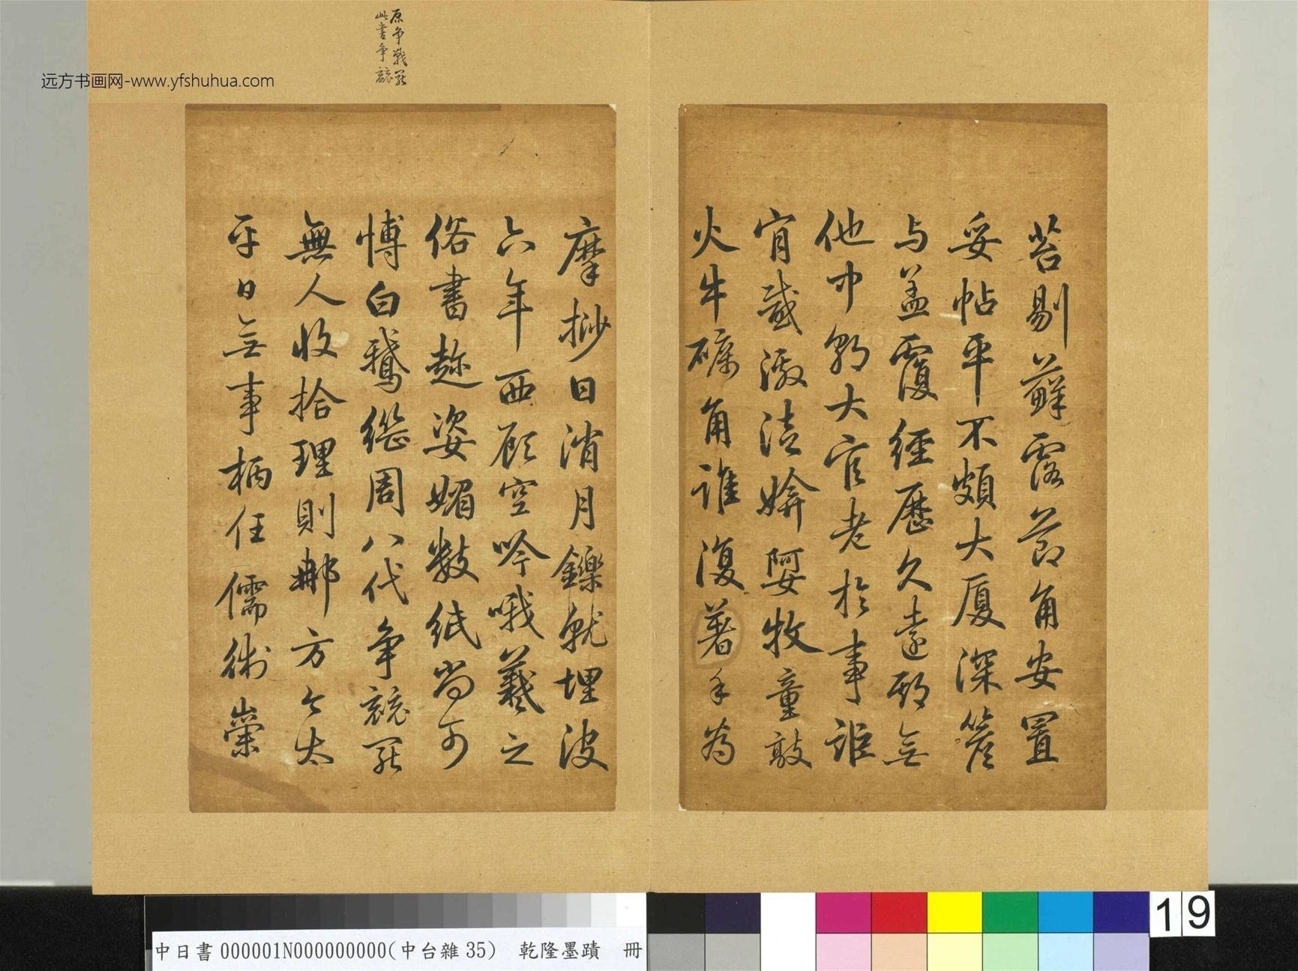 远方书画网-www.yfshuhua.com
原争戰罷
此書争競
苔剔蘚露節角安置
妥帖平不頗大厦深簷
与盖覆經歷久遠期无
他中朝大官老於事詎
肯感激徒媕婀牧童敲
火牛礪角誰復著手為
摩挱日消月鑠就埋沒
六年西顧空吟哦羲之
俗書趂姿媚數紙尚可
博白鵝繼周八代争競罷
無人收拾理則那方今太
平日无事柄任儒術崇
中日書000001N000000000(中台雜35) 乾隆墨蹟 冊
19